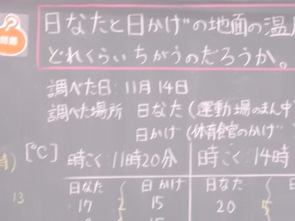 問題
日なたと日かげの地面の温
どれくらいちがうのだろうか。
調べた日:11月14日
調べた場所 日なた(運動場のまん中
日かげ(体育館のかげ
[℃] 時こく:11時20分 時こく:14時
日なた 日かげ 日なた
13 17 2 15 20 5